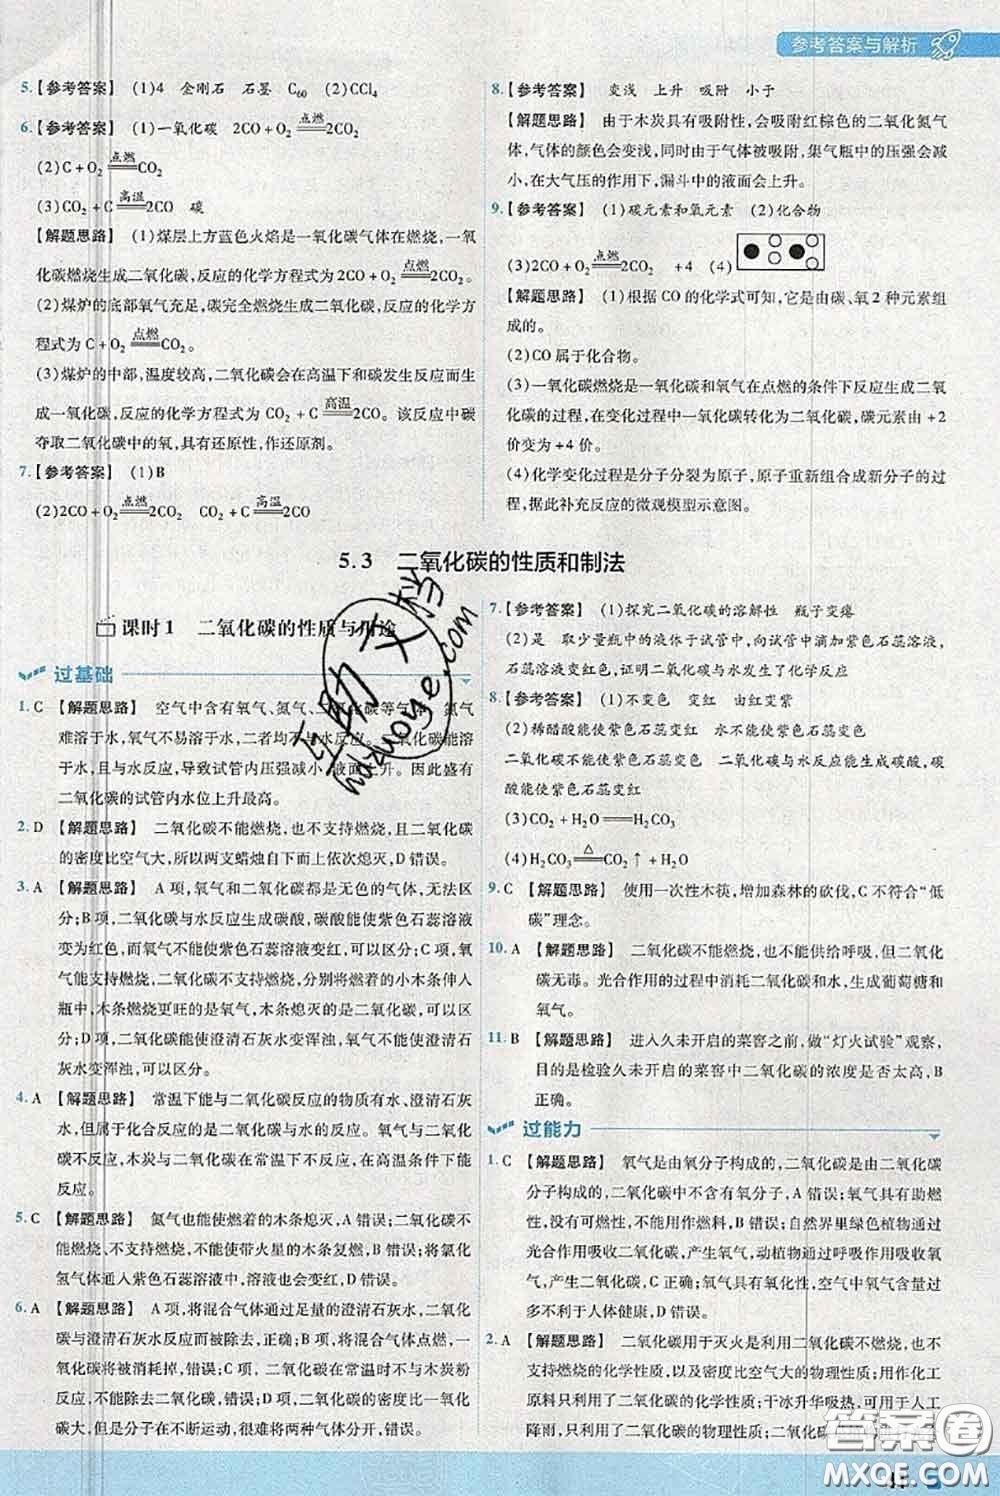 参考答案与解析
5.【参考答案】 (1)4 金刚石 石墨 C60 (2)CCl4
6.【参考答案】 (1)一氧化碳 2CO+O2 点燃 2CO2
(2)C+O2 点燃 CO2
(3)CO2+C 高温 2CO 碳
【解题思路】 (1)煤层上方蓝色火焰是一氧化碳气体在燃烧,一氧
化碳燃烧生成二氧化碳,反应的化学方程式为2CO+O2 点燃 2CO2。
(2)煤炉的底部氧气充足,碳完全燃烧生成二氧化碳,反应的化学方
程式为C+O2 点燃 CO2。
(3)煤炉的中部,温度较高,二氧化碳会在高温下和碳发生反应而生
成一氧化碳,反应的化学方程式为CO2+C 高温 2CO。该反应中碳
夺取二氧化碳中的氧,具有还原性,作还原剂。
7.【参考答案】 (1)B
(2)2CO+O2 点燃 2CO2 CO2+C 高温 2CO
8.【参考答案】 变浅 上升 吸附 小于
【解题思路】 由于木炭具有吸附性,会吸附红棕色的二氧化氮气
体,气体的颜色会变浅,同时由于气体被吸附,集气瓶中的压强会减
小,在大气压的作用下,漏斗中的液面会上升。
9.【参考答案】 (1)碳元素和氧元素 (2)化合物
(3)2CO+O2 点燃 2CO2 +4 (4)
【解题思路】 (1)根据CO的化学式可知,它是由碳、氧2种元素组
成的。
(2)CO属于化合物。
(3)一氧化碳燃烧是一氧化碳和氧气在点燃的条件下反应生成二氧
化碳的过程,在变化过程中一氧化碳转化为二氧化碳,碳元素由+2
价变为+4价。
(4)化学变化过程是分子分裂为原子,原子重新组合成新分子的过
程,据此补充反应的微观模型示意图。
5.3 二氧化碳的性质和制法
课时1 二氧化碳的性质与用途
过基础
1.C 【解题思路】 空气中含有氧气、氮气、二氧化碳等气体,氮气
难溶于水,氧气不易溶于水,二者均不与水反应。二氧化碳能溶
于水,且与水反应,导致试管内压强减小,液面上升。因此盛有
二氧化碳的试管内水位上升最高。
2.D 【解题思路】 二氧化碳不能燃烧,也不支持燃烧,且二氧化碳
的密度比空气大,所以两支蜡烛自下而上依次熄灭,D错误。
3.A 【解题思路】 A项,氧气和二氧化碳都是无色的气体,无法区
分;B项,二氧化碳与水反应生成碳酸,碳酸能使紫色石蕊溶液
变为红色,而氧气不能使紫色石蕊溶液变红,可以区分;C项,氧
气能支持燃烧,二氧化碳不支持燃烧,分别将燃着的小木条伸人
瓶中,木条燃烧更旺的是氧气,木条熄灭的是二氧化碳,可以区
分;D项,二氧化碳能使澄清石灰水变浑浊,而氧气不能使澄清石
灰水变浑浊,可以区分。
4.A 【解题思路】 常温下能与二氧化碳反应的物质有水、澄清石灰
水等,其中属于化合反应的是二氧化碳与水的反应。氧气与二氧化
碳不反应,木炭与二氧化碳在常温下不反应,在高温条件下能
反应。
5.C 【解题思路】 氮气也能使燃着的木条熄灭,A错误;二氧化碳不
能燃烧、不支持燃烧,不能使带火星的木条复燃,B错误;将氯化
氢气体通入紫色石蕊溶液中,溶液也会变红,D错误。
6.A 【解题思路】 A项,将混合气体通过足量的澄清石灰水,二氧化
碳与澄清石灰水反应而被除去,正确;B项,将混合气体点燃,一
氧化碳将被消耗掉,错误;C项,二氧化碳在常温时不与木炭粉
反应,不能除去二氧化碳,错误;D项,二氧化碳的密度比一氧化
碳大,但是分子在不断运动,很难将两种气体分开,错误。
7.【参考答案】 (1)探究二氧化碳的溶解性 瓶子变瘪
(2)是 取少量瓶中的液体于试管中,向试管中滴加紫色石蕊溶液,
石蕊溶液变红色,证明二氧化碳与水发生了化学反应
8.【参考答案】 (1)不变色 变红 由红变紫
(2)稀醋酸能使紫色石蕊变红 水不能使紫色石蕊变色
二氧化碳不能使紫色石蕊变色 二氧化碳与水反应生成碳酸,碳
酸能使紫色石蕊变红
(3)CO2+H2O══H2CO3
(4)H2CO3 △ CO2↑+H2O
9.C 【解题思路】 使用一次性木筷,增加森林的砍伐,C不符合“低
碳”理念。
10.A 【解题思路】 二氧化碳不能燃烧,也不能供给呼吸,但二氧化
碳无毒。光合作用的过程中消耗二氧化碳和水,生成葡萄糖和
氧气。
11.B 【解题思路】 进入久未开启的菜窖之前,做“灯火试验”观察,
目的是检验久未开启的菜窖中二氧化碳的浓度是否太高,B
正确。
过能力
1.C 【解题思路】 氧气是由氧分子构成的,二氧化碳是由二氧化碳
分子构成的,二氧化碳中不含有氧分子,A错误;氧气具有助燃
性,没有可燃性,不能用作燃料,B错误;自然界里绿色植物通过
光合作用吸收二氧化碳,产生氧气,动植物通过呼吸作用吸收氧
气,产生二氧化碳,C正确;氧气具有氧化性,空气中氧气含量过
多不利于人体健康,D错误。
2.A 【解题思路】 二氧化碳用于灭火是利用二氧化碳不燃烧,也不
支持燃烧的化学性质,以及密度比空气大的物理性质;用作化工
原料只利用了二氧化碳的化学性质;干冰升华吸热,可用于人工
降雨,只利用了二氧化碳的
互助文
huzuoye.com
答案圈
MXQE.COM